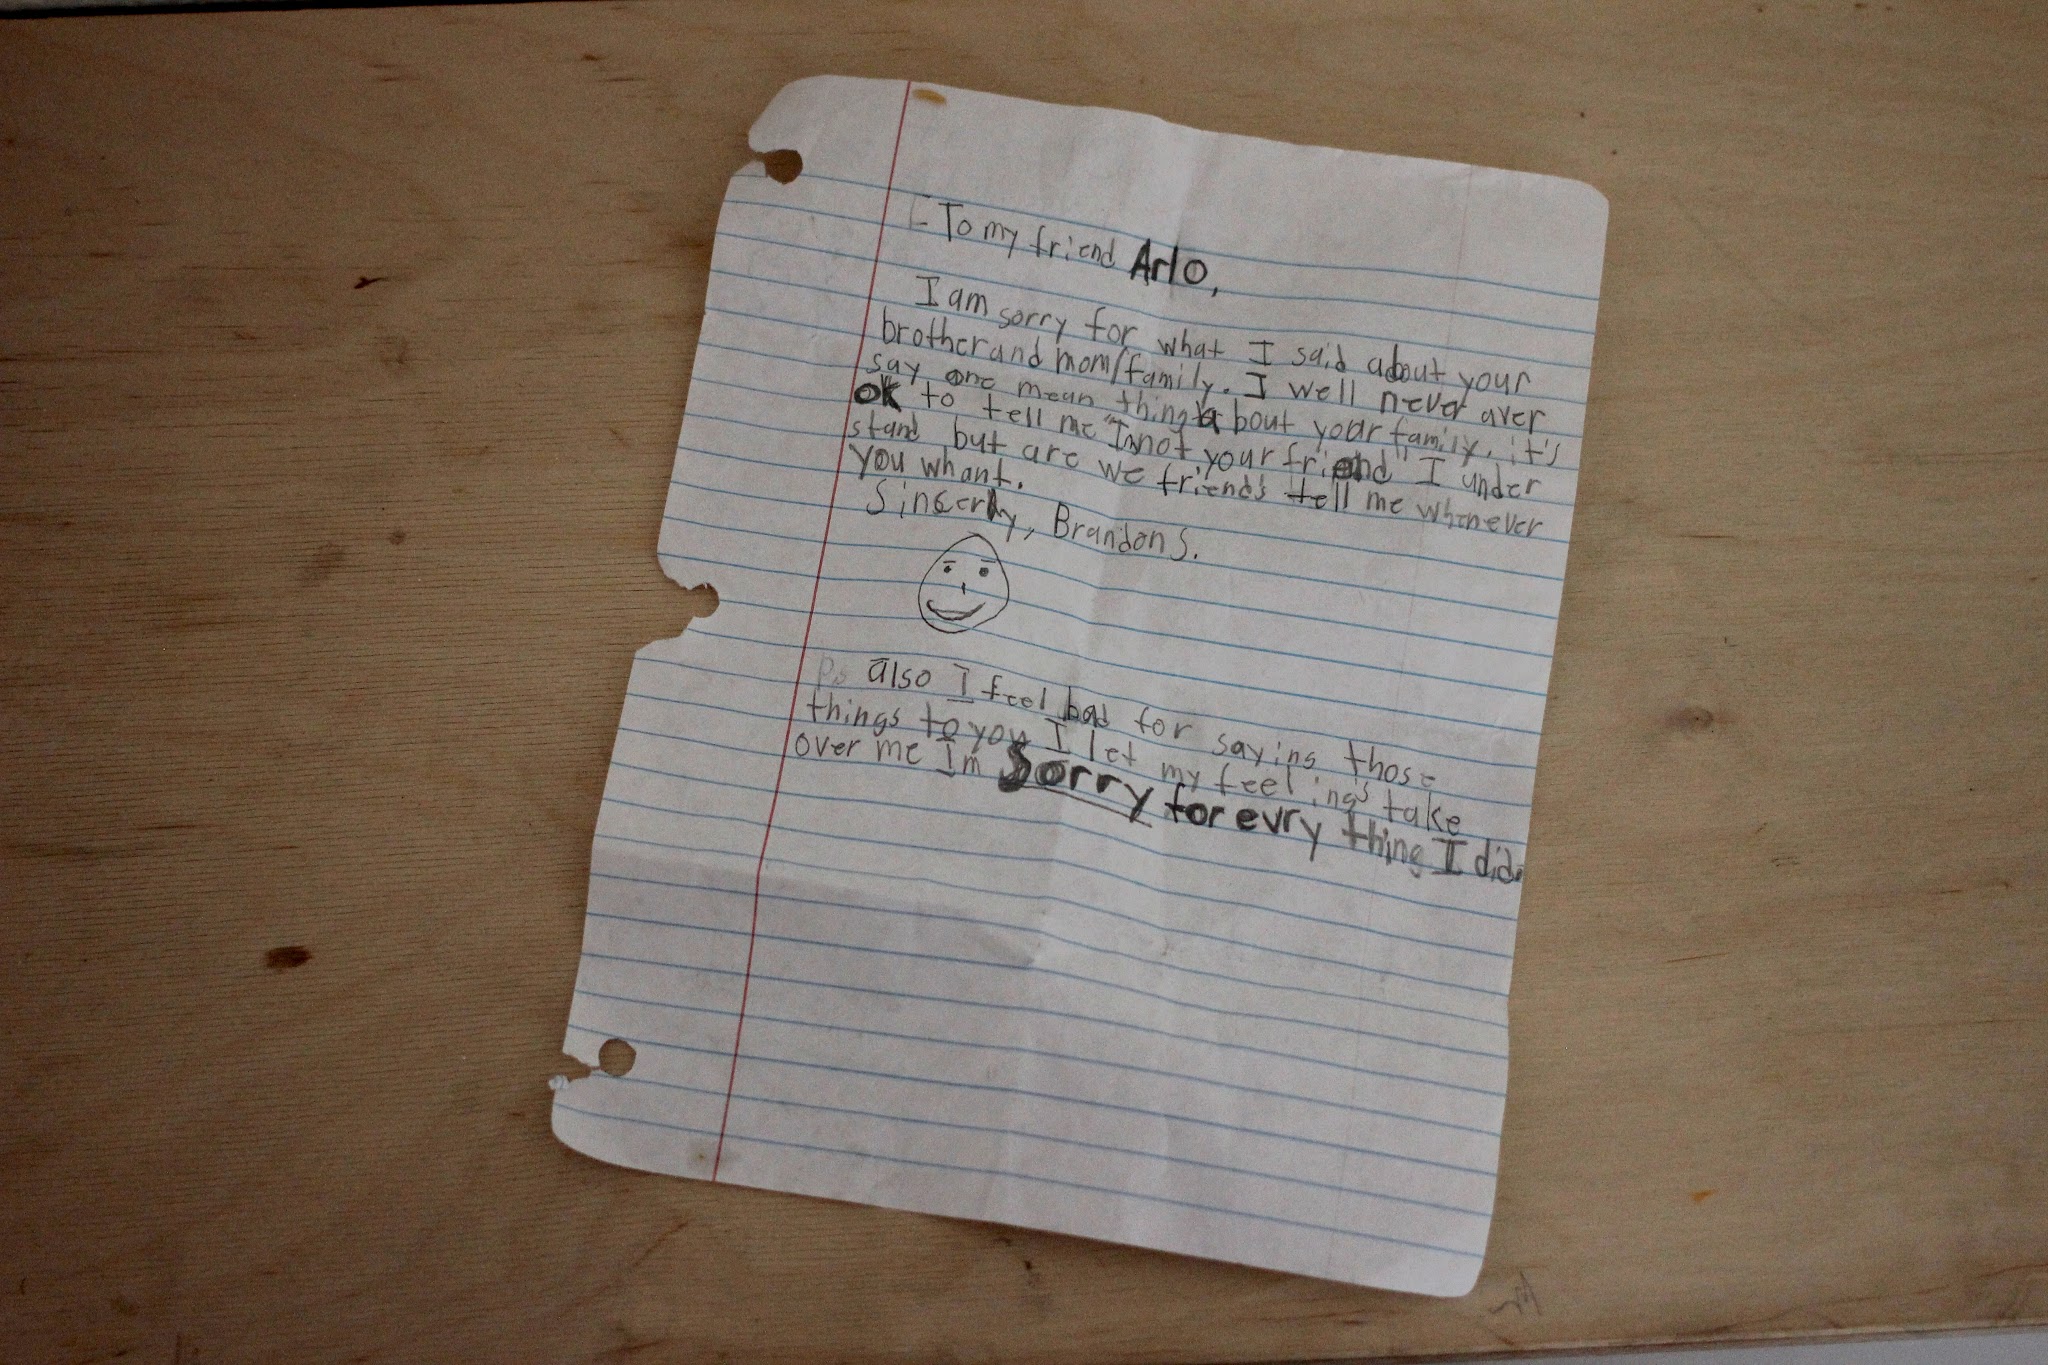 To my friend Arlo,
I am sorry for what I said about your
brother and mom/family. I well never aver
say one mean thing about your family. it's
ok to tell me "Im not your friend" I under
stand but are we friends tell me whenever
you whant.
Sincerly, Brandon S.
Ps also I feel bad for saying those
things to you I let my feelings take
over me Im Sorry for evry thing I did.